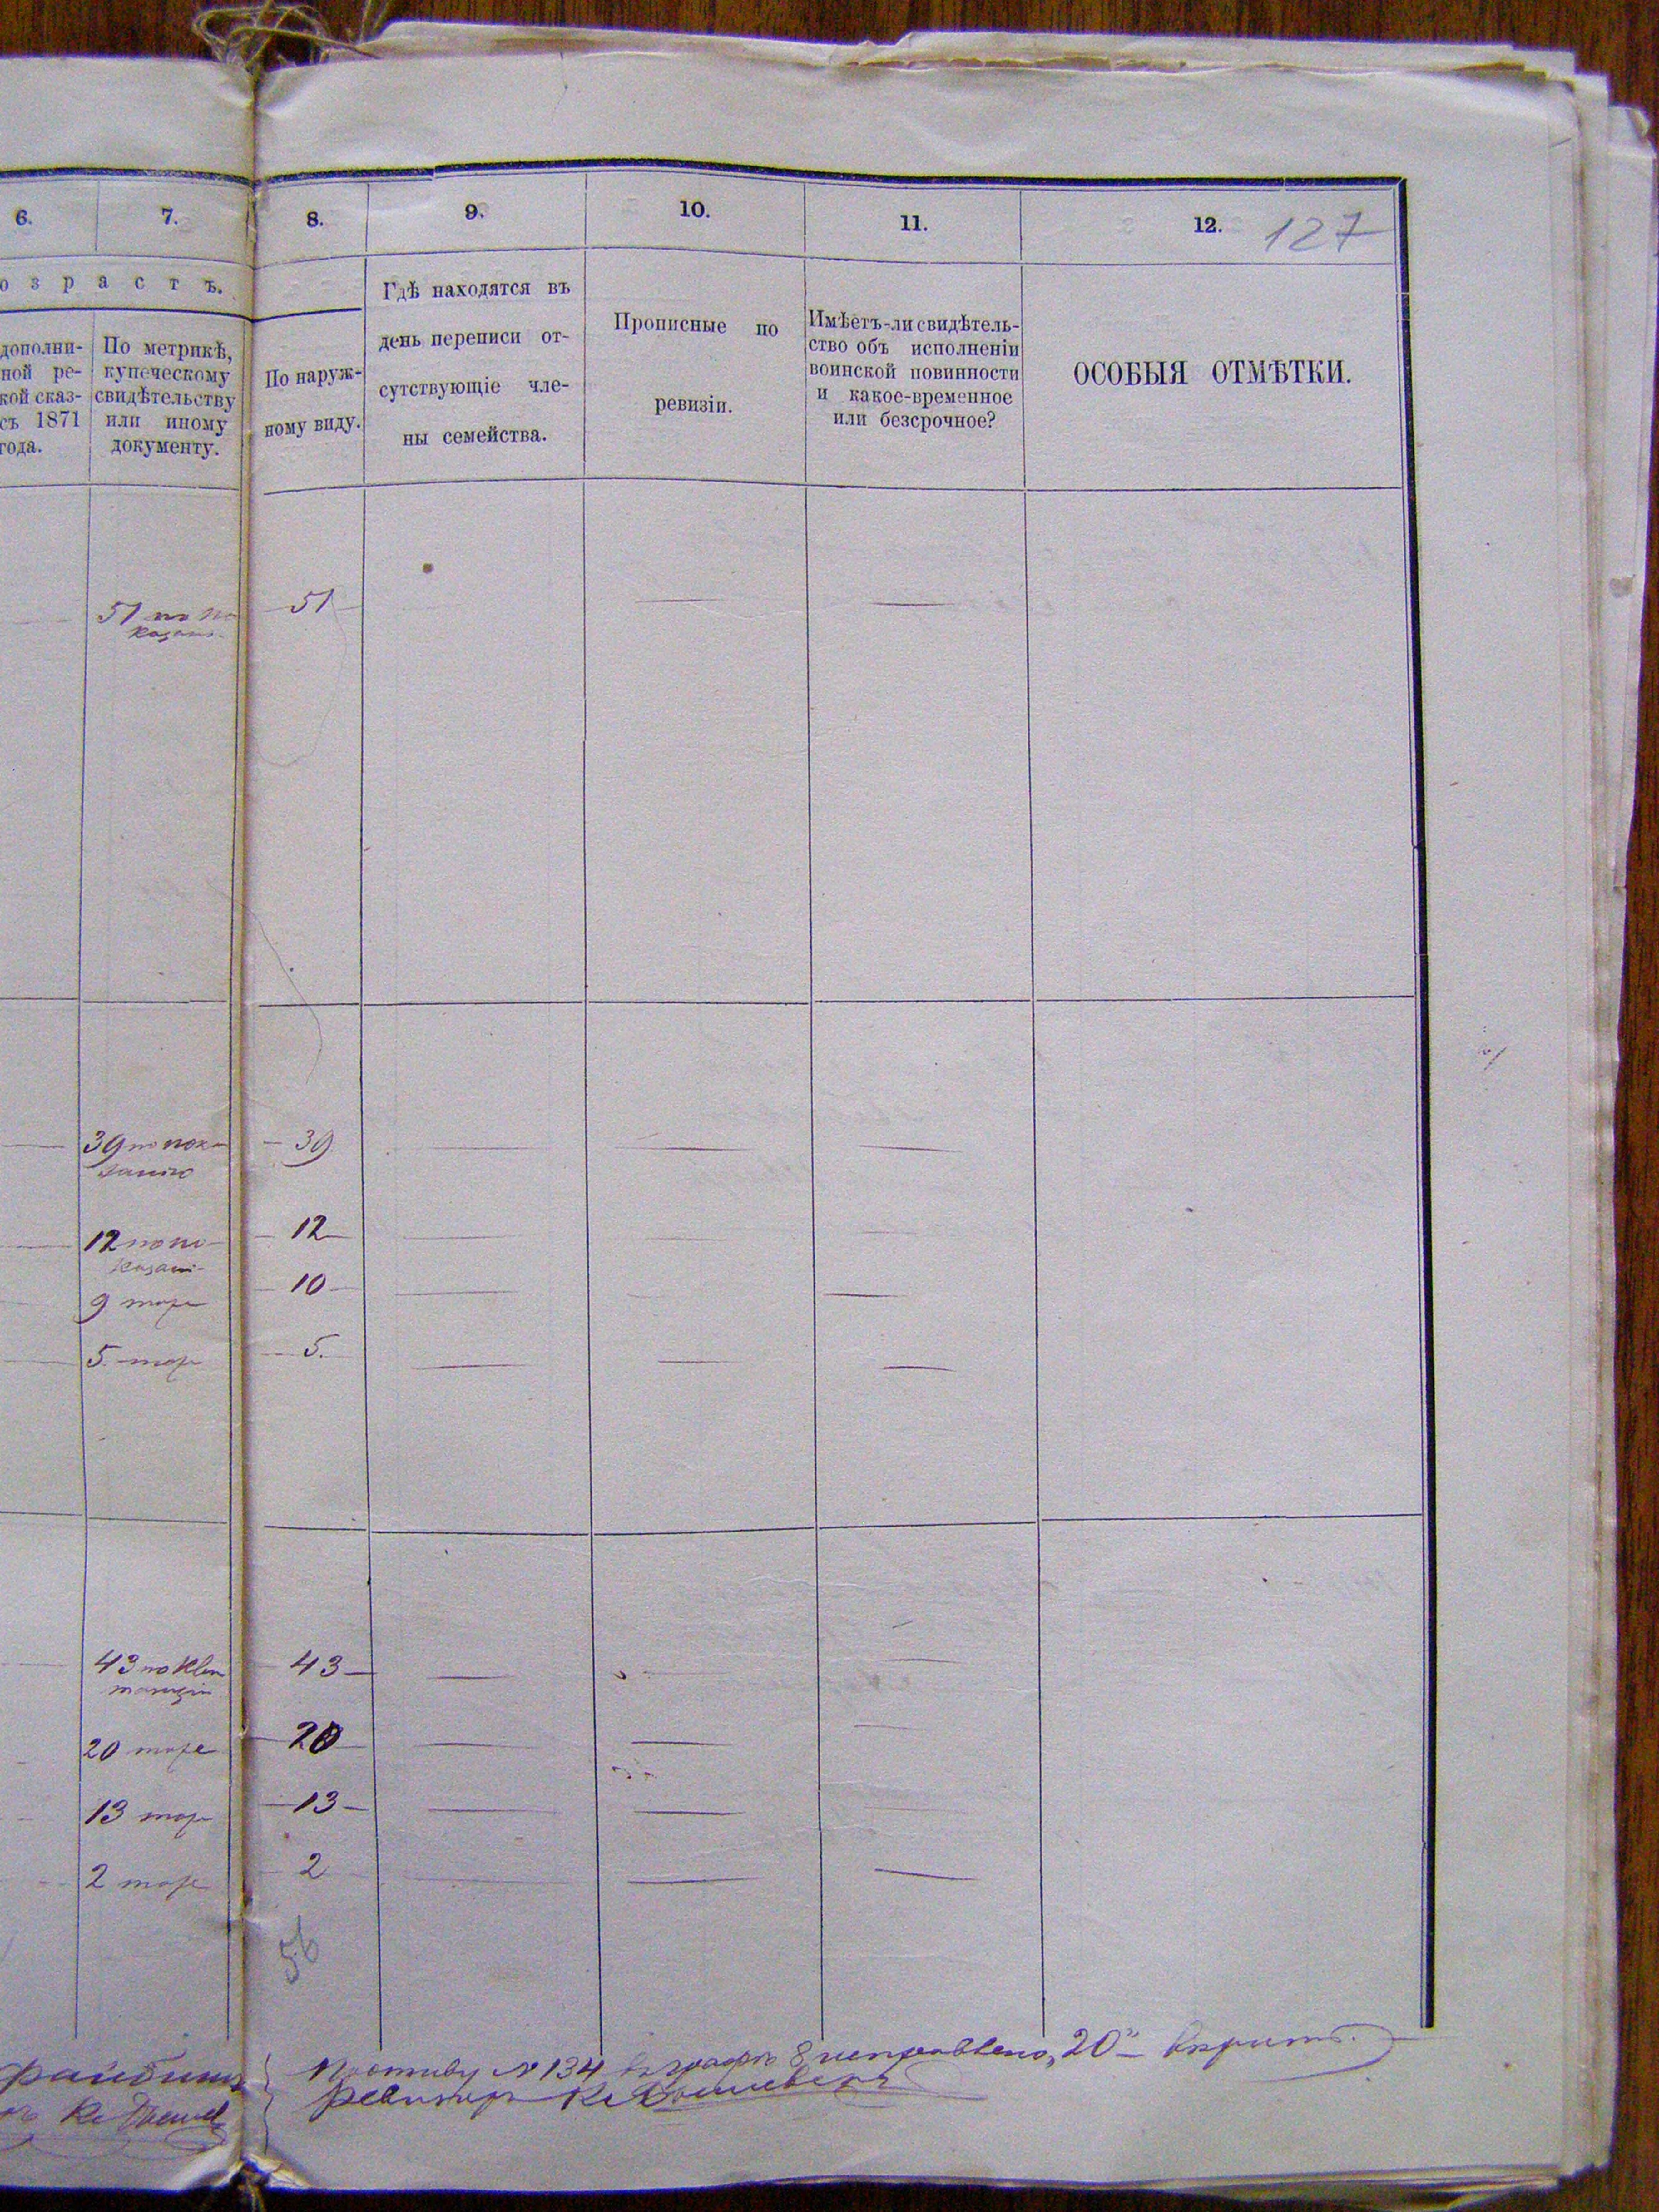 6. 7. 8. 9. 10. 11. 12. 127
озрастъ.
дополни-
ной ре-
кой сказ-
съ 1871
года.
По метрикѣ,
купеческому
свидѣтельству
или иному
документу.
По наруж-
ному виду.
Гдѣ находятся въ
день переписи от-
сутствующіе чле-
ны семейства.
Прописные по
ревизіи.
Имѣетъ-ли свидѣтель-
ство объ исполненіи
воинской повинности
и какое-временное
или безсрочное?
ОСОБЫЯ ОТМѢТКИ.
51 по по
казан. 51
39 по пока
занію 39
12 по по-
казані- 12
9 тоже 10
5 тоже 5.
43 по 43
20 тоже 20
13 тоже 13
2 тоже 2
56
Противу № 134 въ графѣ 8 исправлено "20" вѣрить.